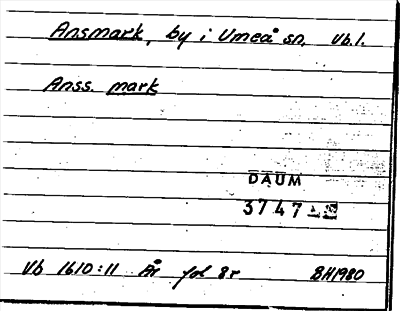 Ansmark, by i Umeå sn. Vb.l.
Anss. mark
DAUM
3747
Vb 1610:11 År fol 8r BH1980